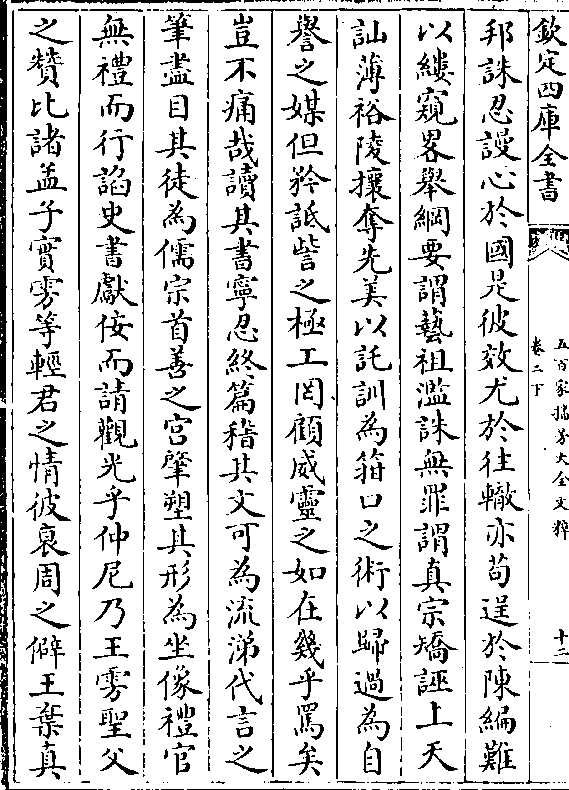 欽定四庫全書
五百家播芳大全文粹
卷二下
十二
邦誅忍謾心於國是彼效尤於往轍亦苟逞於陳編難
以縷窺畧舉綱要謂藝祖濫誅無罪謂真宗矯誣上天
訕薄裕陵攘奪先美以託訓為箝口之術以歸過為自
譽之媒但矜詆訾之極工罔顧威靈之如在幾乎罵矣
豈不痛哉讀其書寧忍終篇稽其文可為流涕代言之
筆盡目其徒為儒宗首善之宫肇塑其形為坐像禮官
無禮而行諂史書獻佞而請觀光乎仲尼乃王雱聖父
之贊比諸孟子實雱等輕君之情彼衰周之僻王葉真